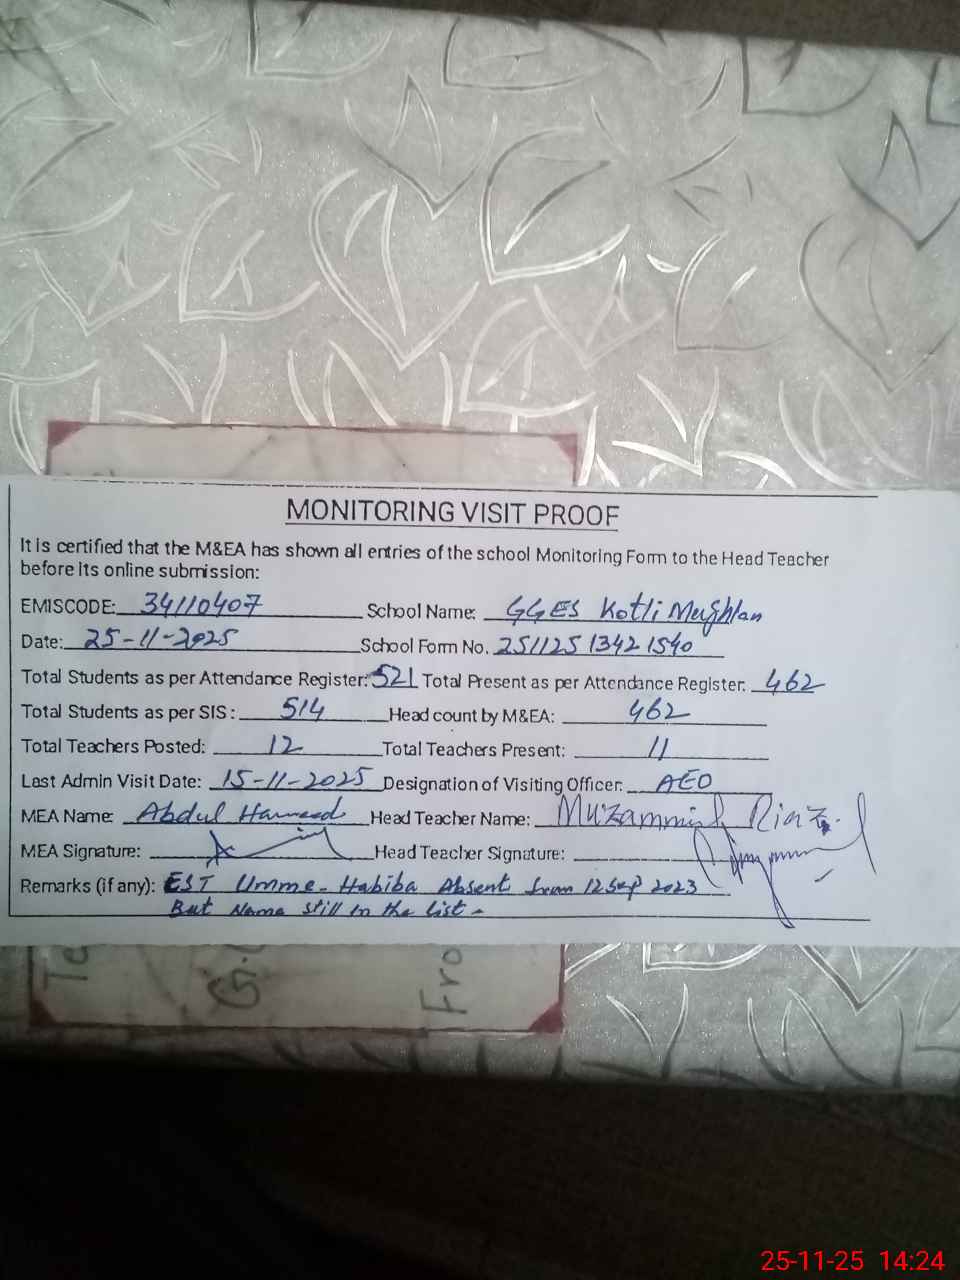 MONITORING VISIT PROOF
It is certified that the M&EA has shown all entries of the school Monitoring Form to the Head Teacher
before its online submission:
EMISCODE: 34110407 School Name: GGES Kotli Mughlan
Date: 25-11-2025 School Form No. 251125 1342 1540
Total Students as per Attendance Register: 521 Total Present as per Attendance Register: 462
Total Students as per SIS: 514 Head count by M&EA: 462
Total Teachers Posted: 12 Total Teachers Present: 11
Last Admin Visit Date: 15-11-2025 Designation of Visiting Officer: AEO
MEA Name: Abdul Hameed Head Teacher Name: Muzammil Riaz
MEA Signature: Head Teacher Signature:
Remarks (if any): EST Umme-Habiba Absent from 12 Sep 2023
But Name still in the list -
Te
G.
Fro
25-11-25 14:24